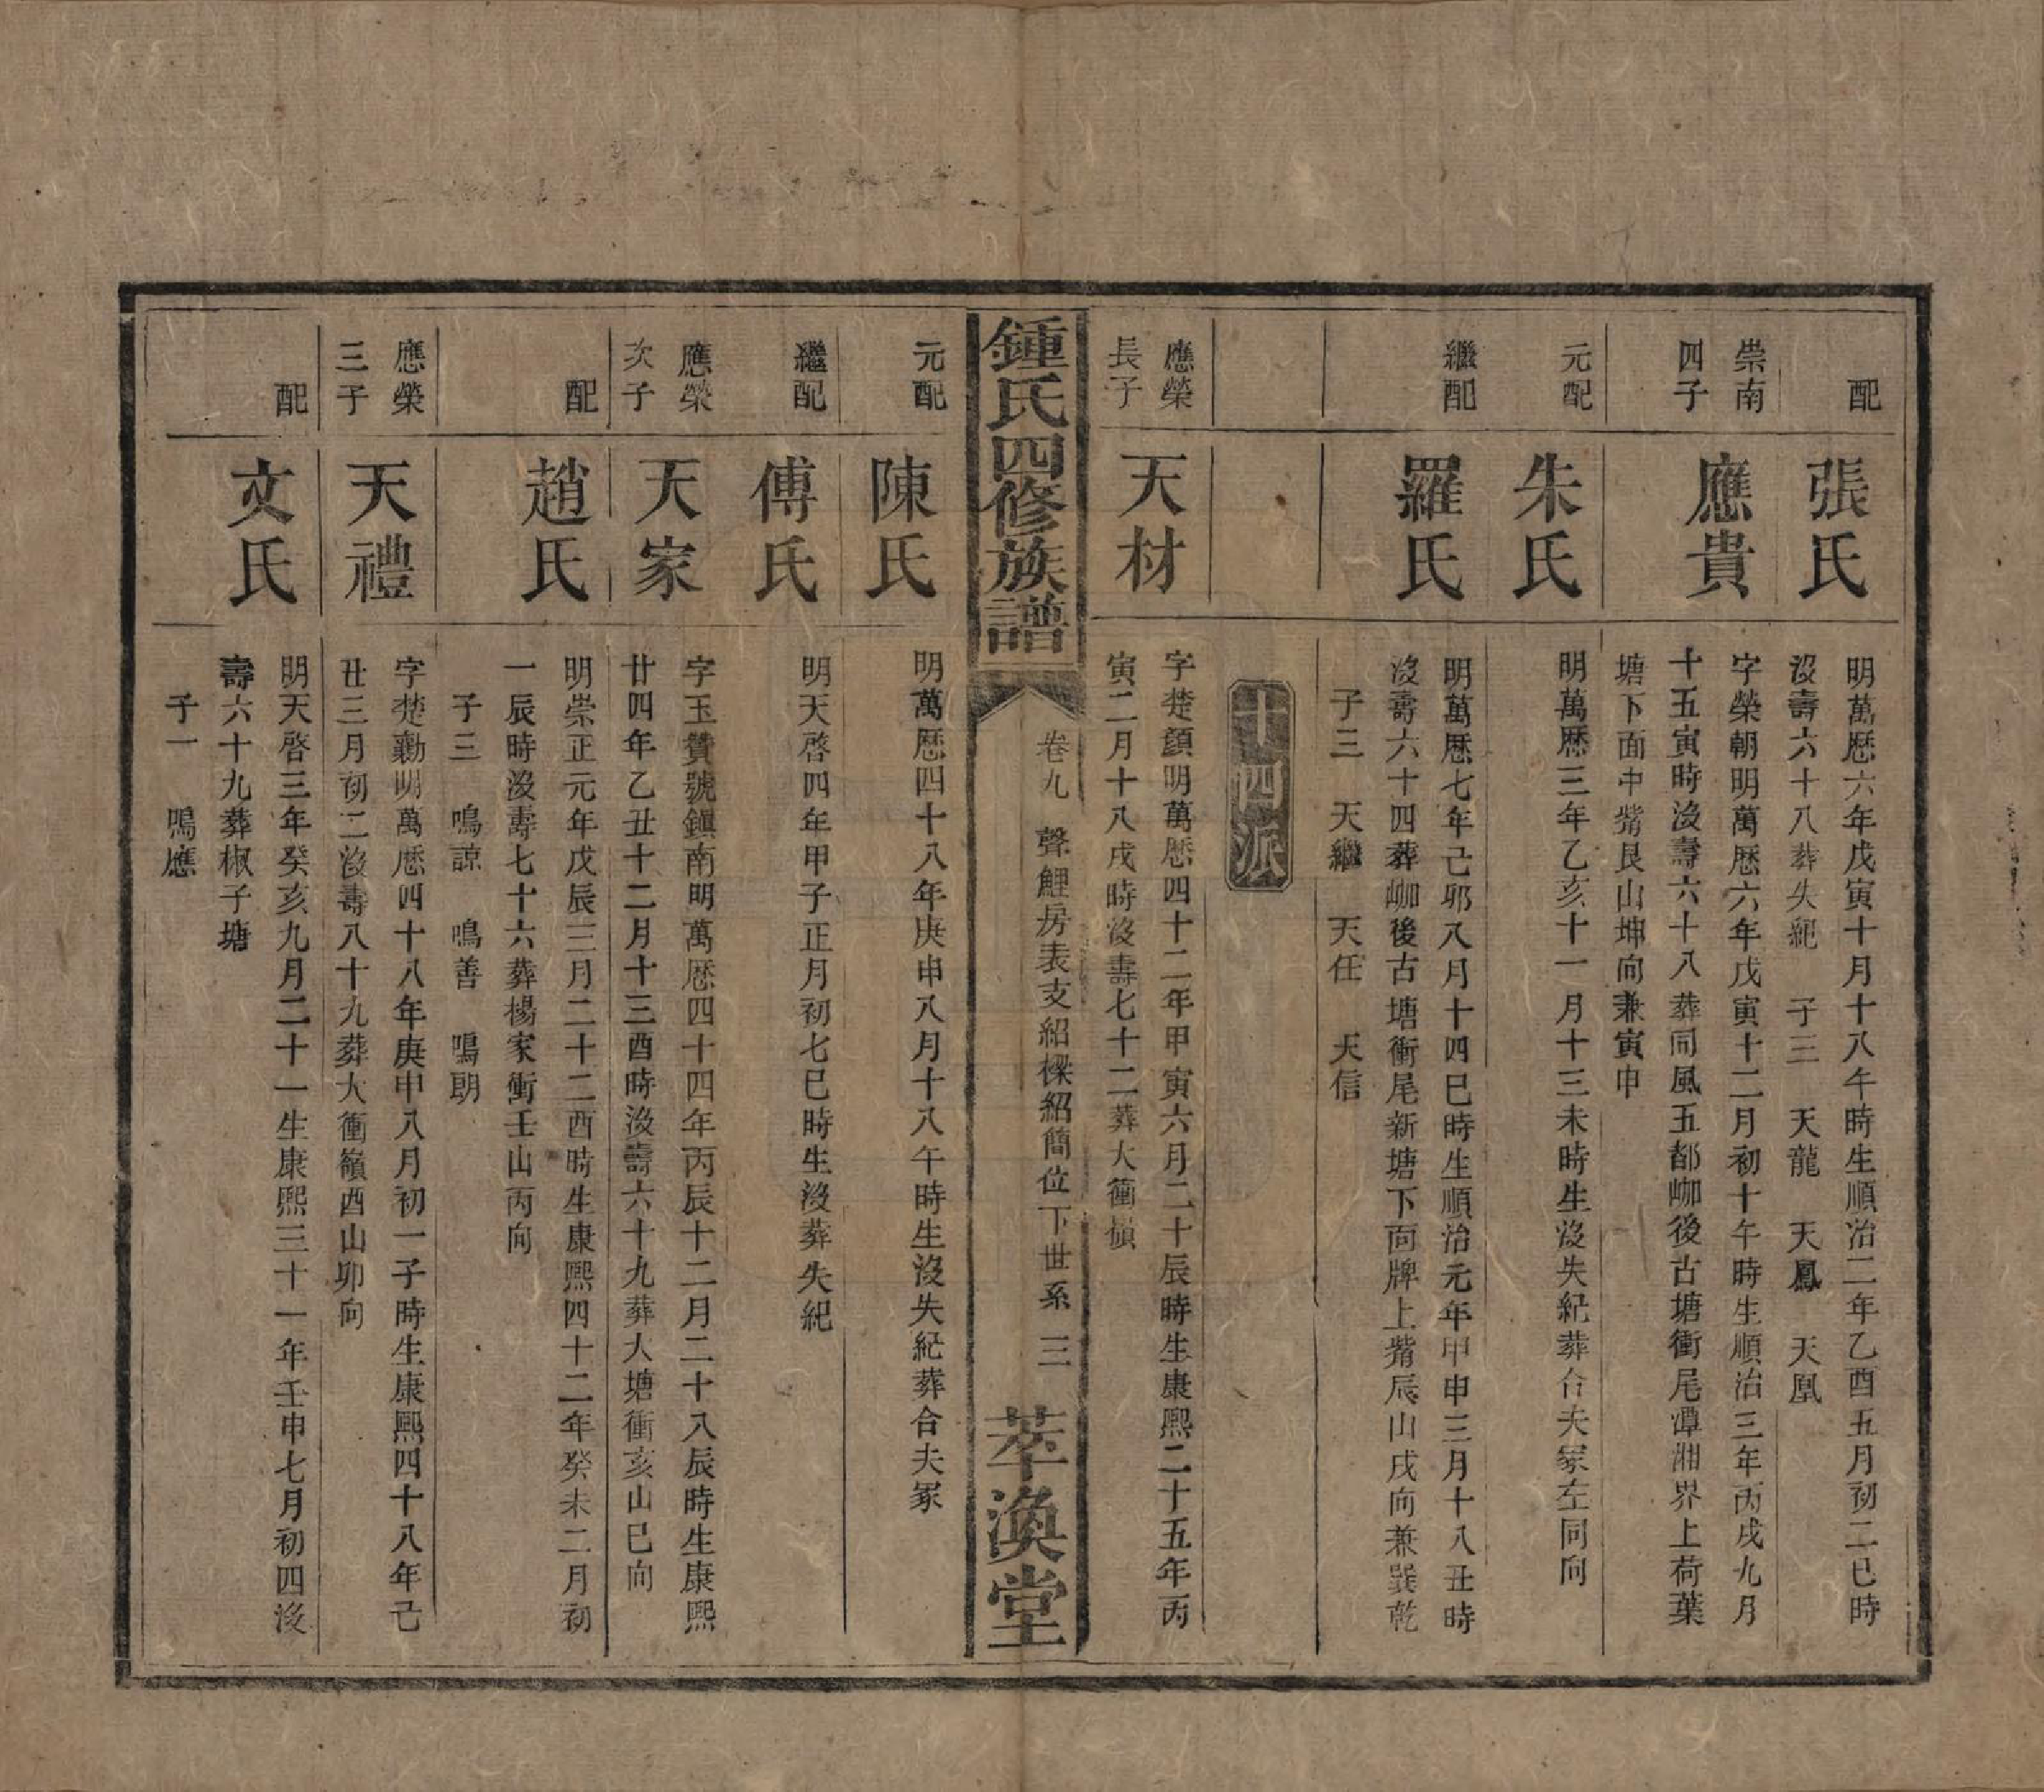 配
張氏
明萬厯六年戊寅十月十八午時生順治二年乙酉五月初二巳時
沒壽六十八葬失紀 子三 天龍 天鳳 天凰
崇南
四子
應貴
字榮朝明萬厯六年戊寅十二月初十午時生順治三年丙戌九月
十五寅時沒壽六十八葬同風五都峫後古塘衝尾潭湘界上荷葉
塘下面中嘴艮山坤向兼寅申
元配
朱氏
明萬厯三年乙亥十一月十三未時生沒失紀葬合夫冢左同向
繼配
羅氏
明萬厯七年己邜八月十四巳時生順治元年甲申三月十八丑時
沒壽六十四葬峫後古塘衝尾新塘下面牌上嘴辰山戌向兼巽乾
子三 天繼 天任 天信
十四派
應榮
長子
天材
字楚顏明萬厯四十二年甲寅六月二十辰時生康熙二十五年丙
寅二月十八戌時沒壽七十二葬大衝嵿
鍾氏四修族譜
卷九 聲鯉房表支紹樑紹簡位下世系 三
萃渙堂
元配
陳氏
明萬厯四十八年庚申八月十八午時生沒失紀葬合夫冢
繼配
傅氏
明天啓四年甲子正月初七巳時生沒葬失紀
應榮
次子
天家
字玉贊號鎭南明萬厯四十四年丙辰十二月二十八辰時生康熙
廿四年乙丑十二月十三酉時沒壽六十九葬大塘衝亥山巳向
配
趙氏
明崇正元年戊辰三月二十二酉時生康熙四十二年癸未二月初
一辰時沒壽七十六葬楊家衝壬山丙向
子三 鳴諒 鳴善 鳴朗
應榮
三子
天禮
字楚勷明萬厯四十八年庚申八月初一子時生康熙四十八年己
丑三月初二沒壽八十九葬大衝嶺酉山卯向
配
文氏
明天啓三年癸亥九月二十一生康熙三十一年壬申七月初四沒
壽六十九葬椒子塘
子一 鳴應